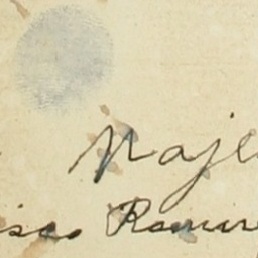 Naje
isco Ramire